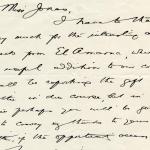 Miss Jonas,
I have to tha
ry much for the interesting
ds from El Amarna, wh
useful addition to our co
will be reporting the gift
in due course, but in
perhaps you will be go
to convey my thanks to your
if the opportunity occurs